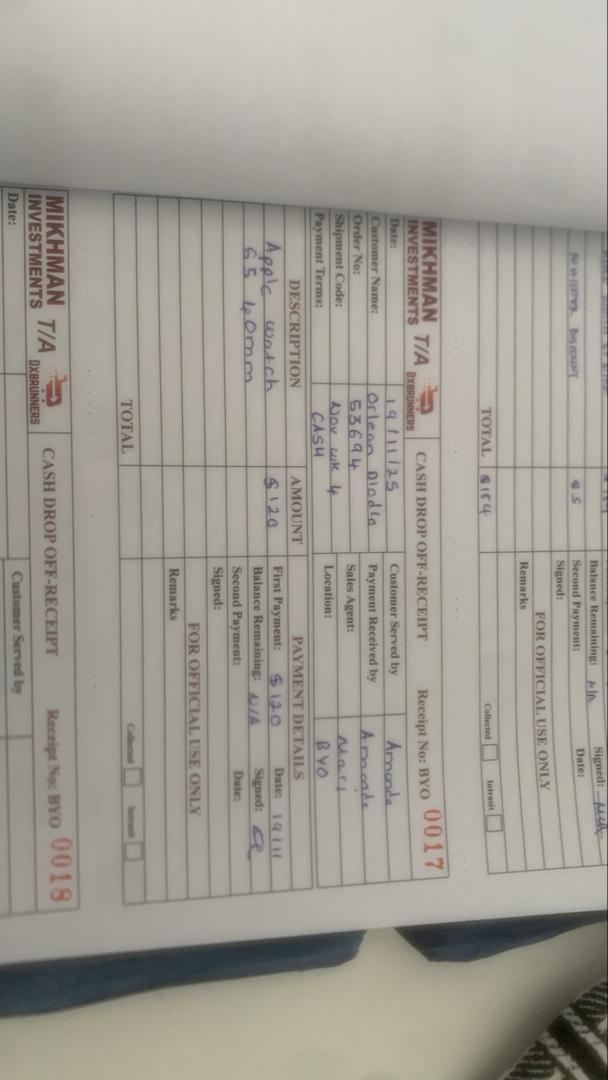 Balance Remaining: N/A Signed:
DISCOUNT $5 Second Payment: Date:
Signed:
FOR OFFICIAL USE ONLY
Remarks
TOTAL $154 Collected Intransit
MIKHMAN INVESTMENTS T/A DXBRUNNERS CASH DROP OFF-RECEIPT Receipt No: BYO 0017
Date: 19/11/25 Customer Served by Amanda
Customer Name: Orlean Dlodlo Payment Received by Amanda
Order No: 53694 Sales Agent:
Shipment Code: Nov wk 4 Location: BYO
Payment Terms: CASH
DESCRIPTION AMOUNT PAYMENT DETAILS
Apple watch $120 First Payment: $120 Date: 19/11
S5 40mm Balance Remaining: N/A Signed:
Second Payment: Date:
Signed:
FOR OFFICIAL USE ONLY
Remarks
TOTAL Collected Intransit
MIKHMAN INVESTMENTS T/A DXBRUNNERS CASH DROP OFF-RECEIPT Receipt No: BYO 0018
Date: Customer Served by